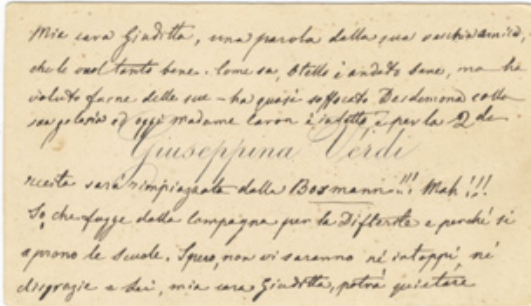 Mia cara Giuditta, una parola dalla sua vecchia amica,
che le vuol tanto bene. Come sa, Otello è andato bene, ma ha
voluto farne delle sue – ha quasi soffocato Desdemona colla
sua gelosia ed oggi madame Caron è in letto, e per la 2de
Giuseppina Verdi
recita sarà rimpiazzata dalla Bosmann!!! Mah!!!
So che fugge dalla Campagna per la Difterite e perchè si
aprono le scuole. Spero, non vi saranno nè intoppi nè
disgrazie e Lei, mia cara Giuditta, potrà quietare